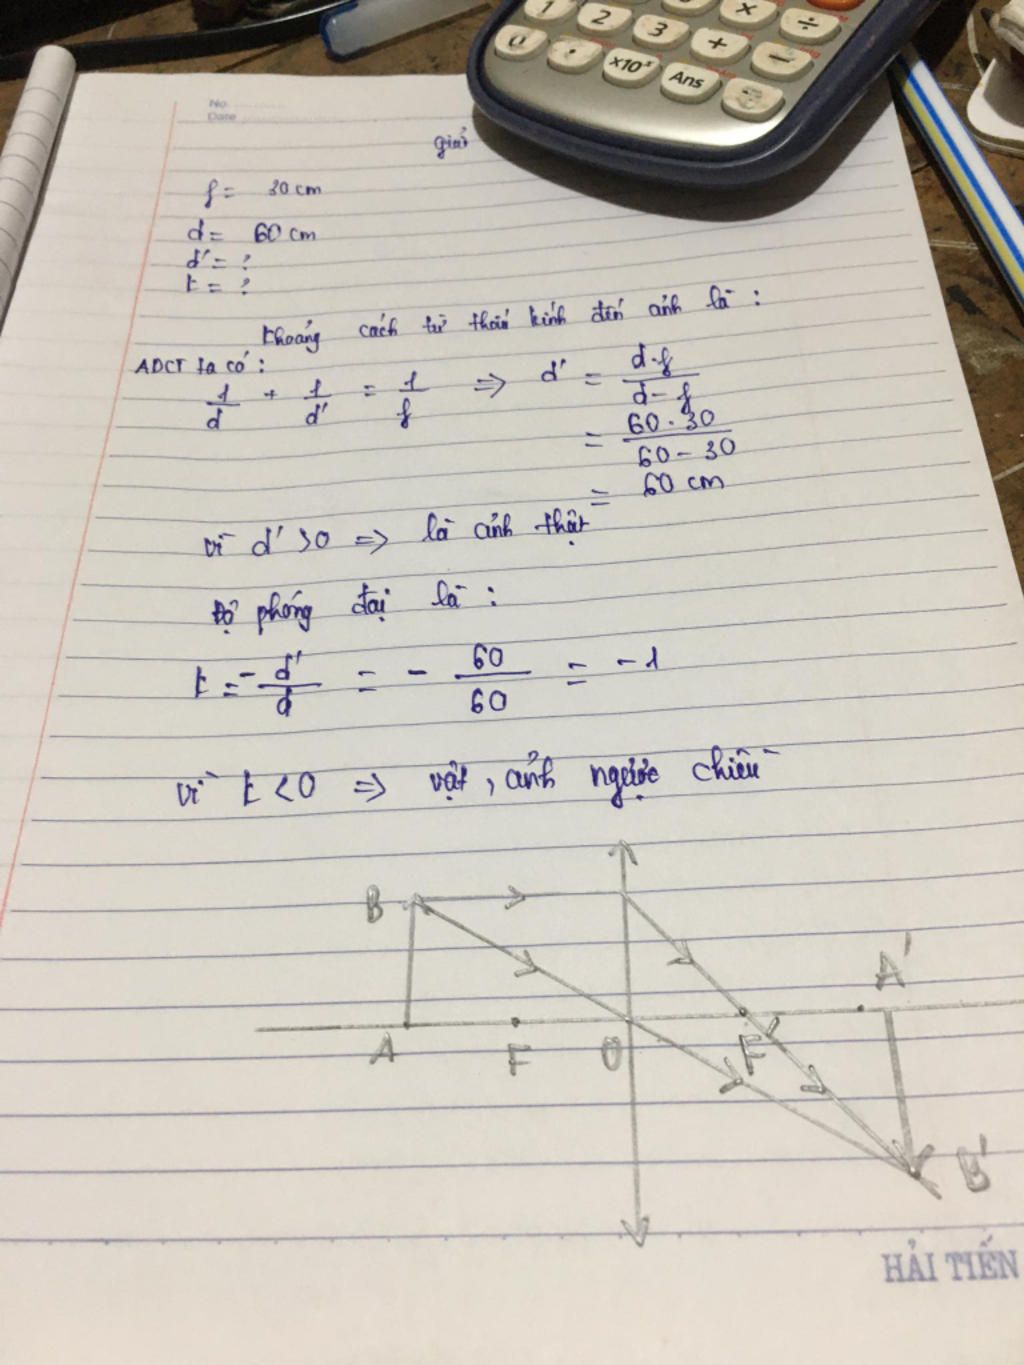 1 2 3 × ÷
0 . ×10ˣ Ans + −
No.
Date
giải
f = 30 cm
d = 60 cm
d' = ?
k = ?
khoảng cách từ thấu kính đến ảnh là :
ADCT ta có :
1/d + 1/d' = 1/f => d' = d.f/d-f
= 60.30/60-30
= 60 cm
vì d' >0 => là ảnh thật
Độ phóng đại là :
k = - d'/d = - 60/60 = -1
vì k <0 => vật, ảnh ngược chiều
B
A'
A F O F'
B'
HẢI TIẾN